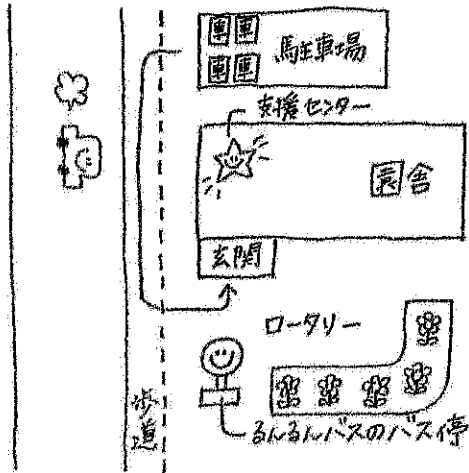 車 車
車 車
駐車場
支援センター
園舎
玄関
ロータリー
歩道
るんるんバスのバス停